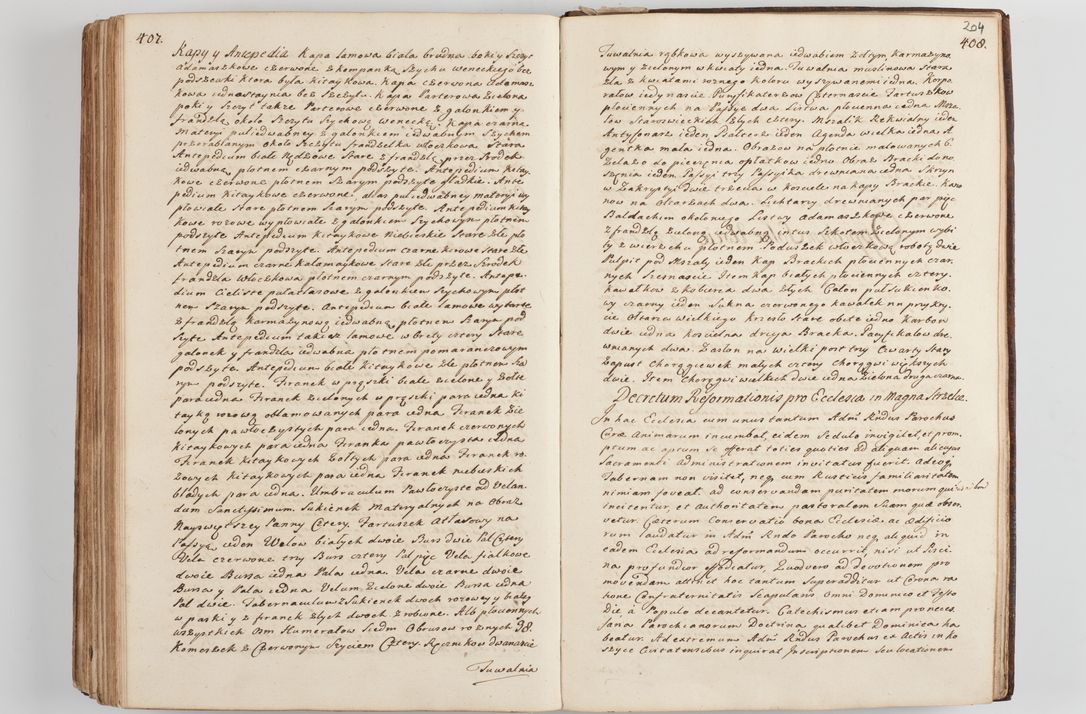 407.
Kapy y Antepedia Kapa lamowa biala brudna boki y Szczyt
Adamaszkowe czerwone z kompanką Szychu weneckiego bez
podszewki ktora była kitaykowa. Kapa czerwona Adamasz
kowa iednostaynia bez Szczytu. Kapa Parterowa zielona
boki y Szczyt także Parterowe czerwone z galonkiem y
frandzlą około Szczytu Szychową wenecką. Kapa czarna
materyi pul iedwabney z galonkiem iedwabnym Szychem
przerabianym około Szczytu frandzelka włoczkowa Stara
Antepedium białe Rądzowe Stare z frandzlą przez Srodek
iedwabną płotnem czarnym podszyte. Antepedium kitay
kowe czerwone płotnem Szarym podszyte gładkie. Ante
pedium kitaykowe czerwone, atlas pul iedwabney materyi wy
płowiałe Stare płotnem Szarym podszyte. Antepedium kitay
kowe rozowe wypłowiałe z galonkiem Szychowym płotnem
podszyte Antepedium kitaykowe Niebieskie Stare złe pło
tnem Szarym podszyte. Antepedium czarne kirowe Stare złe
Antepedium czarne kalamaykowe Stare złe przez Srodek
frandzla Włoczkowa płotnem czarnym podszyte. Antepe
dium Cieliste palatiasowe z galonkiem Szychowym płot
nem Szarym podszyte. Antepedium białe lamowe wytarte
z frandzlą Karmazynową iedwabną płotnem Szarym pod
szyte Antepedium takież lamowe w bryty cztery Stare
galonek y frandzla iedwabna płotnem pomaranczowym
podszyte. Antepedium białe kitaykowe złe płotnem Sza
rym podszyte. Firanek w prązki białe zielone y żołte
para iedna Firanek zielonych w prązki para iedna ki
tayką rozową oblamowanych para iedna. Firanek zie
lonych pawłoczystych para iedna. Firanek czerwonych
kitaykowych para iedna Firanka pawłoczysta iedna
Firanek kitaykowych żołtych para iedna Firanek ro
zowych kitaykowych para iedna Firanek niebieskich
bladych para iedna. Umbraculum Pawłoczyste ad Velan
dum Sanctissimum. Sukienek Materyalnych na Obraz
Nayswiętszey Panny Cztery. Fartuszek Atlasowy na
Passyą ieden Welow białych dwoie Burs dwie Pal Cztery
Vela czerwone trzy Burs cztery Pal pięć Vela fiałkowe
dwoie Bursa iedna Pala iedna. Vela czarne dwoie
Bursa y Pala iedna Velum zielone dwoie Bursa iedna
Pal dwie. Tabernaculum z Sukienek dwoch rozowey y białey
w paski y z franek złych dwoch zrobione. Alb płociennych
wszystkich Osm Humerałow Siedm Obrusow roznych 38.
Komeszek z Czerwonym Szyciem Cztery. Ręcznikow dwanascie
Tuwalnia

204
408.
Tuwalnia rąbkowa wyszywana iedwabiem żołtym karmazyno
wym y zielonym w kwiaty iedna. Tuwalnia muslinowa Stara
zła z kwiatami roznego koloru wyszywanemi iedna. Korpo
rałow iedynascie. Puryfikaterzow Czternascie Fartuszkow
płociennych na Passye dwa Listwa płocienna iedna Msza
łow Staroswieckich złych Cztery. Mszalik Rekwialny ieden
Antyfonarz ieden Psałterz ieden Agenda wielka iedna A
gentka mała iedna. Obrazow na płotnie malowanych 6.
Zelazo do pieczenia opłatkow iedno. Obraz Bracki do no
szenia ieden. Passyi trzy Passyika drewniana iedna Skrzyn
w Zakrystyi Dwie trzecia w kosciele na kapy Brackie. Kano
now na Ołtarzach dwa. Lichtarzy drewnianych par pięć
Baldachim około niego Listwy Adamaszkowe czerwone
z frandzlą zieloną iedwabną intus Szkotem zielonym wybi
ty z wierzchu płotnem. Poduszek włoczkową robotą dwie
Pulpit pod Mszały ieden Kap Brackich płociennych czar
nych Szesnascie Item Kap białych płociennych cztery.
Kawałkow z kobierca dwa złych Całon puł Sukienko
wy czarny ieden Sukna czerwonego kawałek na przykry
cie Ołtarza Wielkiego Krzesło Stare obite iedno Karbon
dwie iedna koscielna druga Bracka. Pacyfikałow dre
wnianych dwa. Zasłon na wielki post trzy Czwarty Stary
Zapust Chorągiewek małych cztery Chorągwi większych
dwie. Item Chorągwi wielkich dwie iedna Zielona druga czarna.
Decretum Reformationis pro Ecclesia in Magna Strzelce.
In hac Ecclesia cum unus tantum Admodum Rndus Parochus
Curæ Animarum incumbat, eidem Sedulo invigilet, et prom
ptum ac aptum se offerat toties quoties ad aliquam alicujus
Sacramenti administrationem invitatus fuerit. Adeoq.
Tabernam non visitet, neq. cum Rusticis familiaritatem
nimiam foveat, ad conservandam puritatem morum
incitentur, et authoritatem pastoralem Suam quæ obser
vetur. Cæterum Conservatio bona Ecclesiæ, ac ædificio
rum laudatur in Adm Rndo Parocho neq. aliquid in
eadem Ecclesia ad reformandum occurrit, nisi ut Pisci
na profundior effodiatur, Quodvero ad devotionem pro
movendam attinet hoc tantum Superadditur ut Corona ra
tione Confraternitatis Scapularis Omni Dominico et Festo
die à Populo decantetur. Catechismus etiam pro neces
saria Parochianorum Doctrina qualibet Dominica ha
beatur. Ad extremum Adm Rndus Parochus ex Actis in Ko
szyce Civitatensibus inquirat Inscriptionem Seu locationem